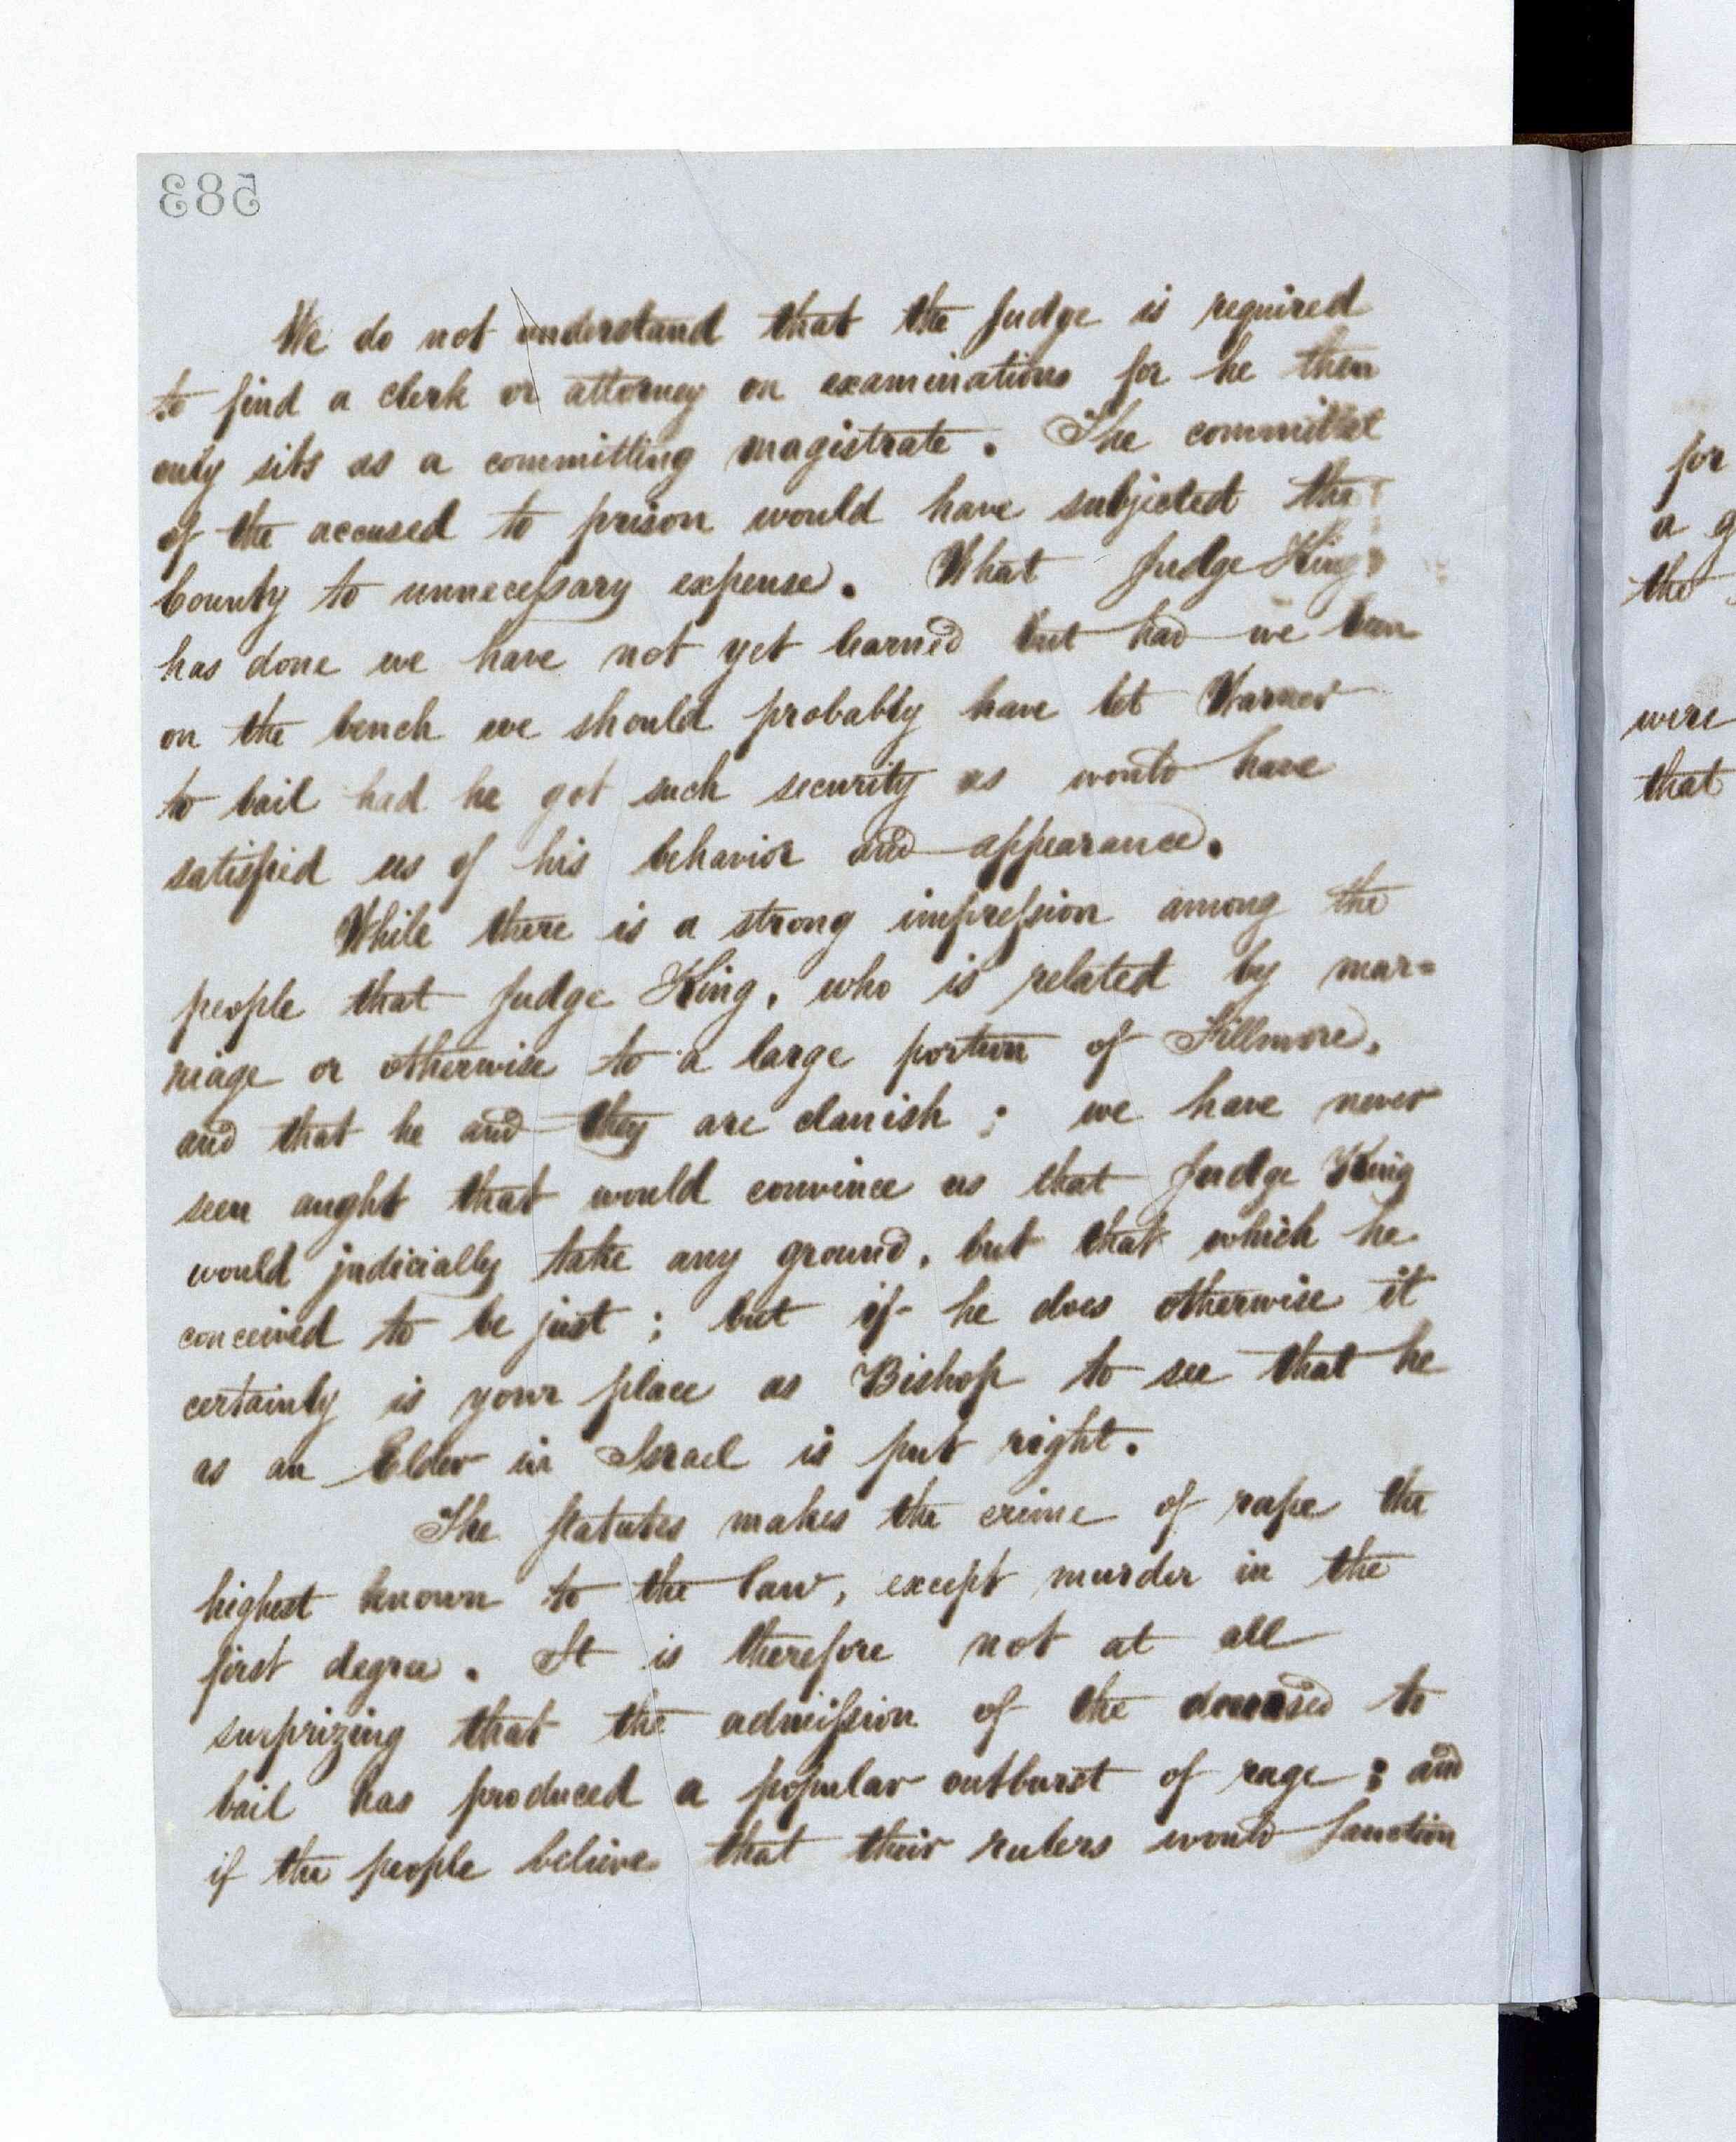 583
We do not understand that the Judge is required
to find a clerk or attorney on examinations for he then
only sits as a committing magistrate. The committal
of the accused to prison would have subjected the
County to unnecessary expense. What Judge King
has done we have not yet learned but had we been
on the bench we should probably have let Warner
to bail had he got such security as would have
satisfied us of his behavior and appearance.
While there is a strong impression among the
people that Judge King, who is related by mar=
riage or otherwise to a large portion of Fillmore,
and that he and they are clanish; we have never
seen aught that would convince us that Judge King
would judicially take any ground, but that which he
conceived to be just; but if he does otherwise it
certainly is your place as Bishop to see that he
as an Elder in Israel is put right.
The Statutes makes the crime of rape the
highest known to the law, except murder in the
first degree. It is therefore not at all
surprizing that the admission of the to
bail has produced a popular outburst of rage; and
if the people believe that their rulers would Sanction
for
a g
the
were
that